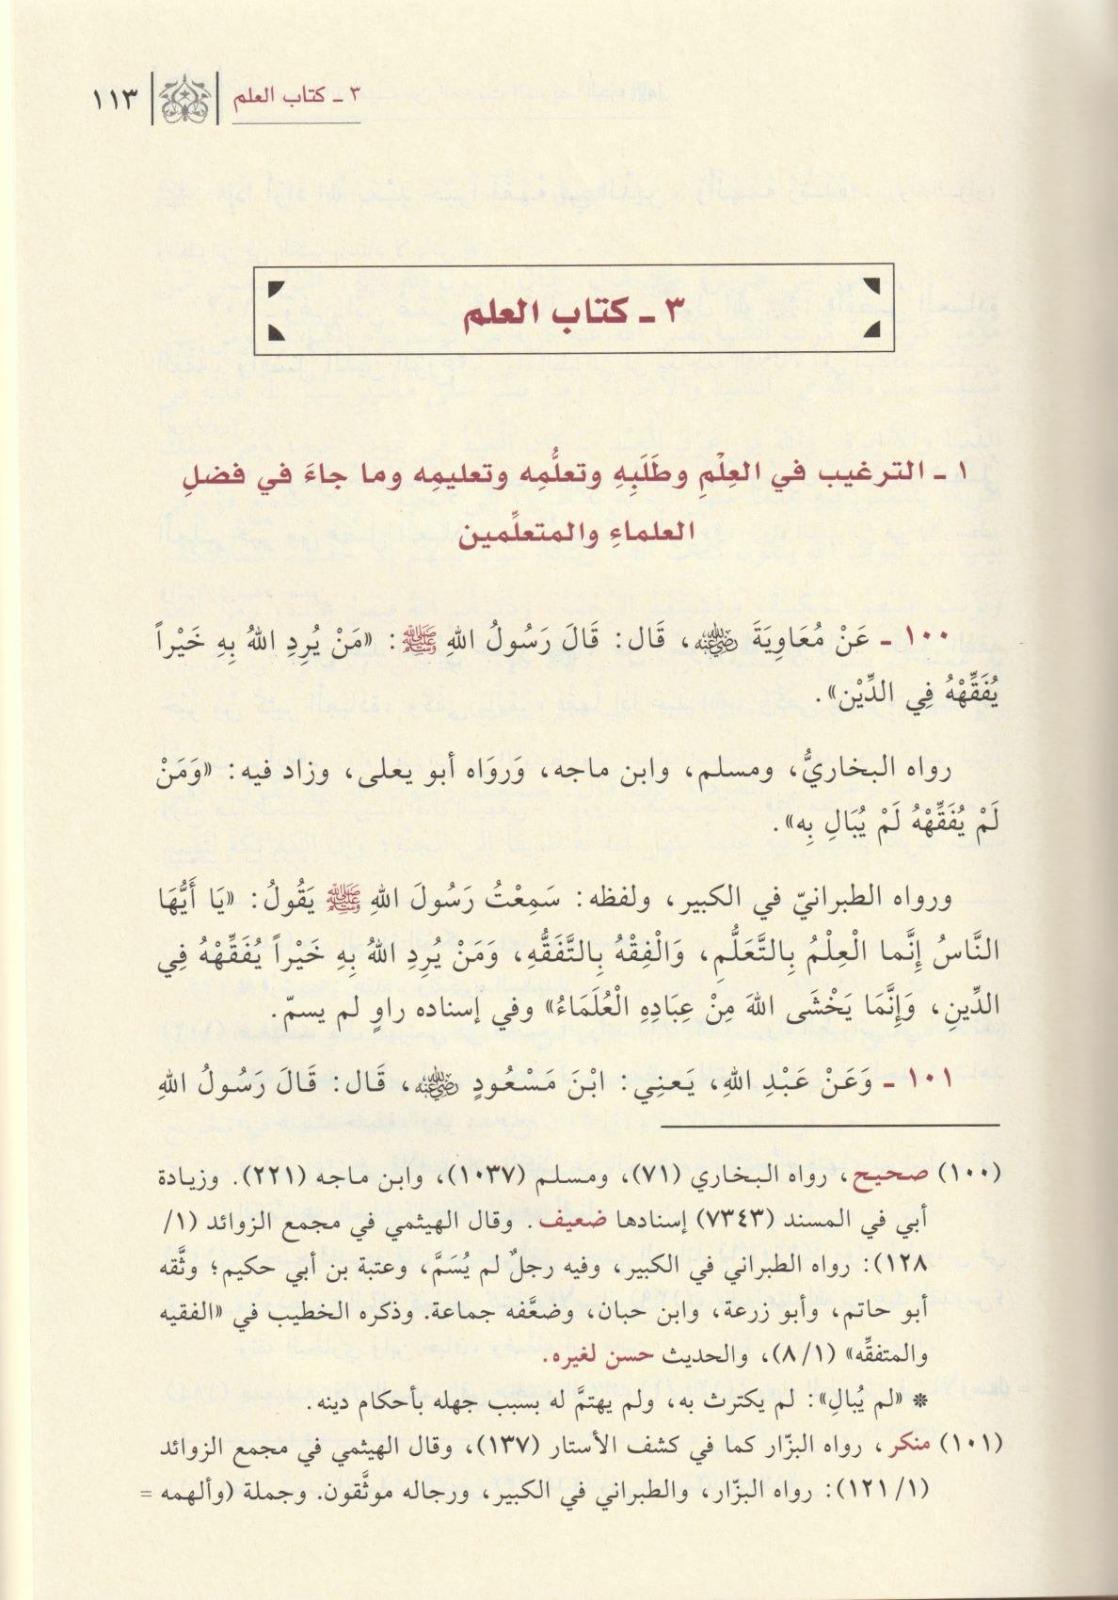 ٣ ـ كتاب العلم ١١٣
٣ ـ كتاب العلم
١ ـ الترغيب في العِلْمِ وطَلَبِهِ وتعلُّمِه وتعليمِه وما جاءَ في فضلِ
العلماءِ والمتعلِّمين
١٠٠ ـ عَنْ مُعَاوِيَةَ رضي الله عنه، قَال: قَالَ رَسُولُ اللهِ ﷺ: «مَنْ يُرِدِ اللهُ بِهِ خَيْراً
يُفَقِّهْهُ فِي الدِّيْن».
رواه البخاريُّ، ومسلم، وابن ماجه، وَروَاه أبو يعلى، وزاد فيه: «وَمَنْ
لَمْ يُفَقِّهْهُ لَمْ يُبَالِ بِه».
ورواه الطبرانيّ في الكبير، ولفظه: سَمِعْتُ رَسُولَ اللهِ ﷺ يَقُولُ: «يَا أَيُّهَا
النَّاسُ إِنَّما الْعِلْمُ بِالتَّعَلُّمِ، وَالْفِقْهُ بِالتَّفَقُّهِ، وَمَنْ يُرِدِ اللهُ بِهِ خَيْراً يُفَقِّهْهُ فِي
الدِّينِ، وَإِنَّمَا يَخْشَى اللهَ مِنْ عِبَادِهِ الْعُلَمَاءُ» وفي إسناده راوٍ لم يسمّ.
١٠١ ـ وَعَنْ عَبْدِ اللهِ، يَعنِي: ابْنَ مَسْعُودٍ رضي الله عنه، قَال: قَالَ رَسُولُ اللهِ
(١٠٠) صحيح، رواه البخاري (٧١)، ومسلم (١٠٣٧)، وابن ماجه (٢٢١). وزيادة
أبي في المسند (٧٣٤٣) إسنادها ضعيف. وقال الهيثمي في مجمع الزوائد (١/
١٢٨): رواه الطبراني في الكبير، وفيه رجلٌ لم يُسَمَّ، وعتبة بن أبي حكيم؛ وثَّقه
أبو حاتم، وأبو زرعة، وابن حبان، وضعَّفه جماعة. وذكره الخطيب في «الفقيه
والمتفقِّه» (٨/١)، والحديث حسن لغيره.
* «لم يُبالِ»: لم يكترث به، ولم يهتمَّ له بسبب جهله بأحكام دينه.
(١٠١) منكر، رواه البزّار كما في كشف الأستار (١٣٧)، وقال الهيثمي في مجمع الزوائد
(١٢١/١): رواه البزّار، والطبراني في الكبير، ورجاله موثَّقون. وجملة (وألهمه =